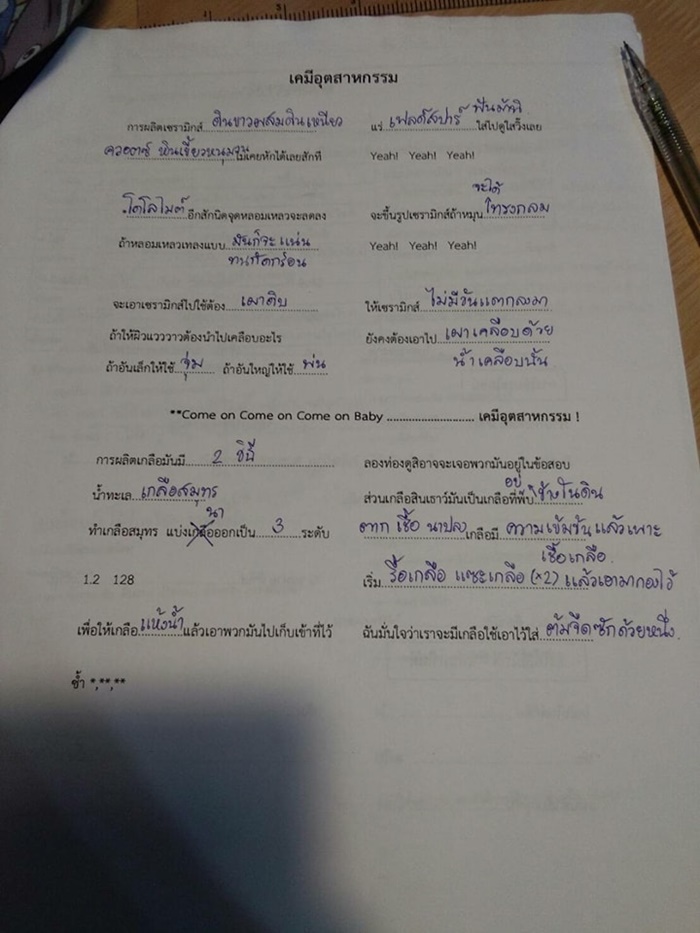 เคมีอุตสาหกรรม
การผลิตเซรามิกส์ ดินขาวผสมดินเหนียว แร่ เฟลด์สปาร์ ฟันม้าที่ ใส่ไปดูใสวิ้งเลย
ควอตซ์ หินเขี้ยวหนุมาน ไม่เคยหักได้เลยสักที Yeah! Yeah! Yeah!
โดโลไมต์ อีกสักนิดจุดหลอมเหลวจะลดลง จะขึ้นรูปเซรามิกส์ถ้าหมุน จะได้ ทรงกลม
ถ้าหลอมเหลวเทลงแบบ มันก็จะแน่น ทนกัดกร่อน Yeah! Yeah! Yeah!
จะเอาเซรามิกส์ไปใช้ต้อง เผาดิบ ให้เซรามิกส์ ไม่มีวันแตกลงมา
ถ้าให้ผิวแวววาวต้องนำไปเคลือบอะไร ยังคงต้องเอาไป เผาเคลือบด้วย
ถ้าอันเล็กให้ใช้ จุ่ม ถ้าอันใหญ่ให้ใช้ พ่น น้ำเคลือบนั้น
**Come on Come on Come on Baby ............................ เคมีอุตสาหกรรม !
การผลิตเกลือมันมี 2 วิธี ลองท่องดูสิอาจจะเจอพวกมันอยู่ในข้อสอบ
น้ำทะเล เกลือสมุทร ส่วนเกลือสินเธาว์มันเป็นเกลือที่พบ อยู่ ข้างในดิน
ทำเกลือสมุทร แบ่ง นา ออกเป็น 3 ระดับ ตาก เชื้อ นาปลง เกลือมี ความเข้มข้นแล้วเพาะ เชื้อเกลือ
1.2 128 เริ่ม รื้อเกลือ แซะเกลือ (×2) แล้วเอามากองไว้
เพื่อให้เกลือ แห้งน้ำ แล้วเอาพวกมันไปเก็บเข้าที่ไว้ ฉันมั่นใจว่าเราจะมีเกลือใช้เอาไว้ใส่ ต้มจืดซักถ้วยหนึ่ง
ซ้ำ *,**,**